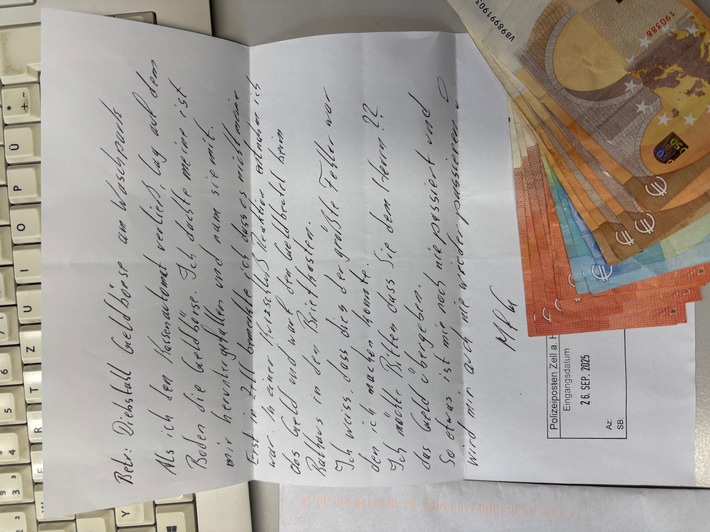 Betr: Diebstall Geldbörse am Waschpark
Als ich den Kassenautomat verließ, lag auf dem
Boden die Geldbörse. Ich dachte meine ist
mir heruntergefallen und nam sie mit.
Erst in Zell bemerkte ich dass es nicht meine
war. In einer Kurzschluß Reaktion entnahm ich
das Geld und warf den Geldbeutel beim
Rathaus in den Briefkasten.
Ich weiss, dass dies der größte Fehler war
den ich machen konnte.
Ich möchte Bitten dass Sie dem Herrn ??
das Geld übergeben.
So etwas ist mir noch nie passiert und
wird mir auch nie wieder passieren
MfG
Polizeiposten Zell a. H
Eingangsdatum
26. SEP. 2025
Az:
SB:
190388
Q
W
T
Z
U
I
O
P
Ü